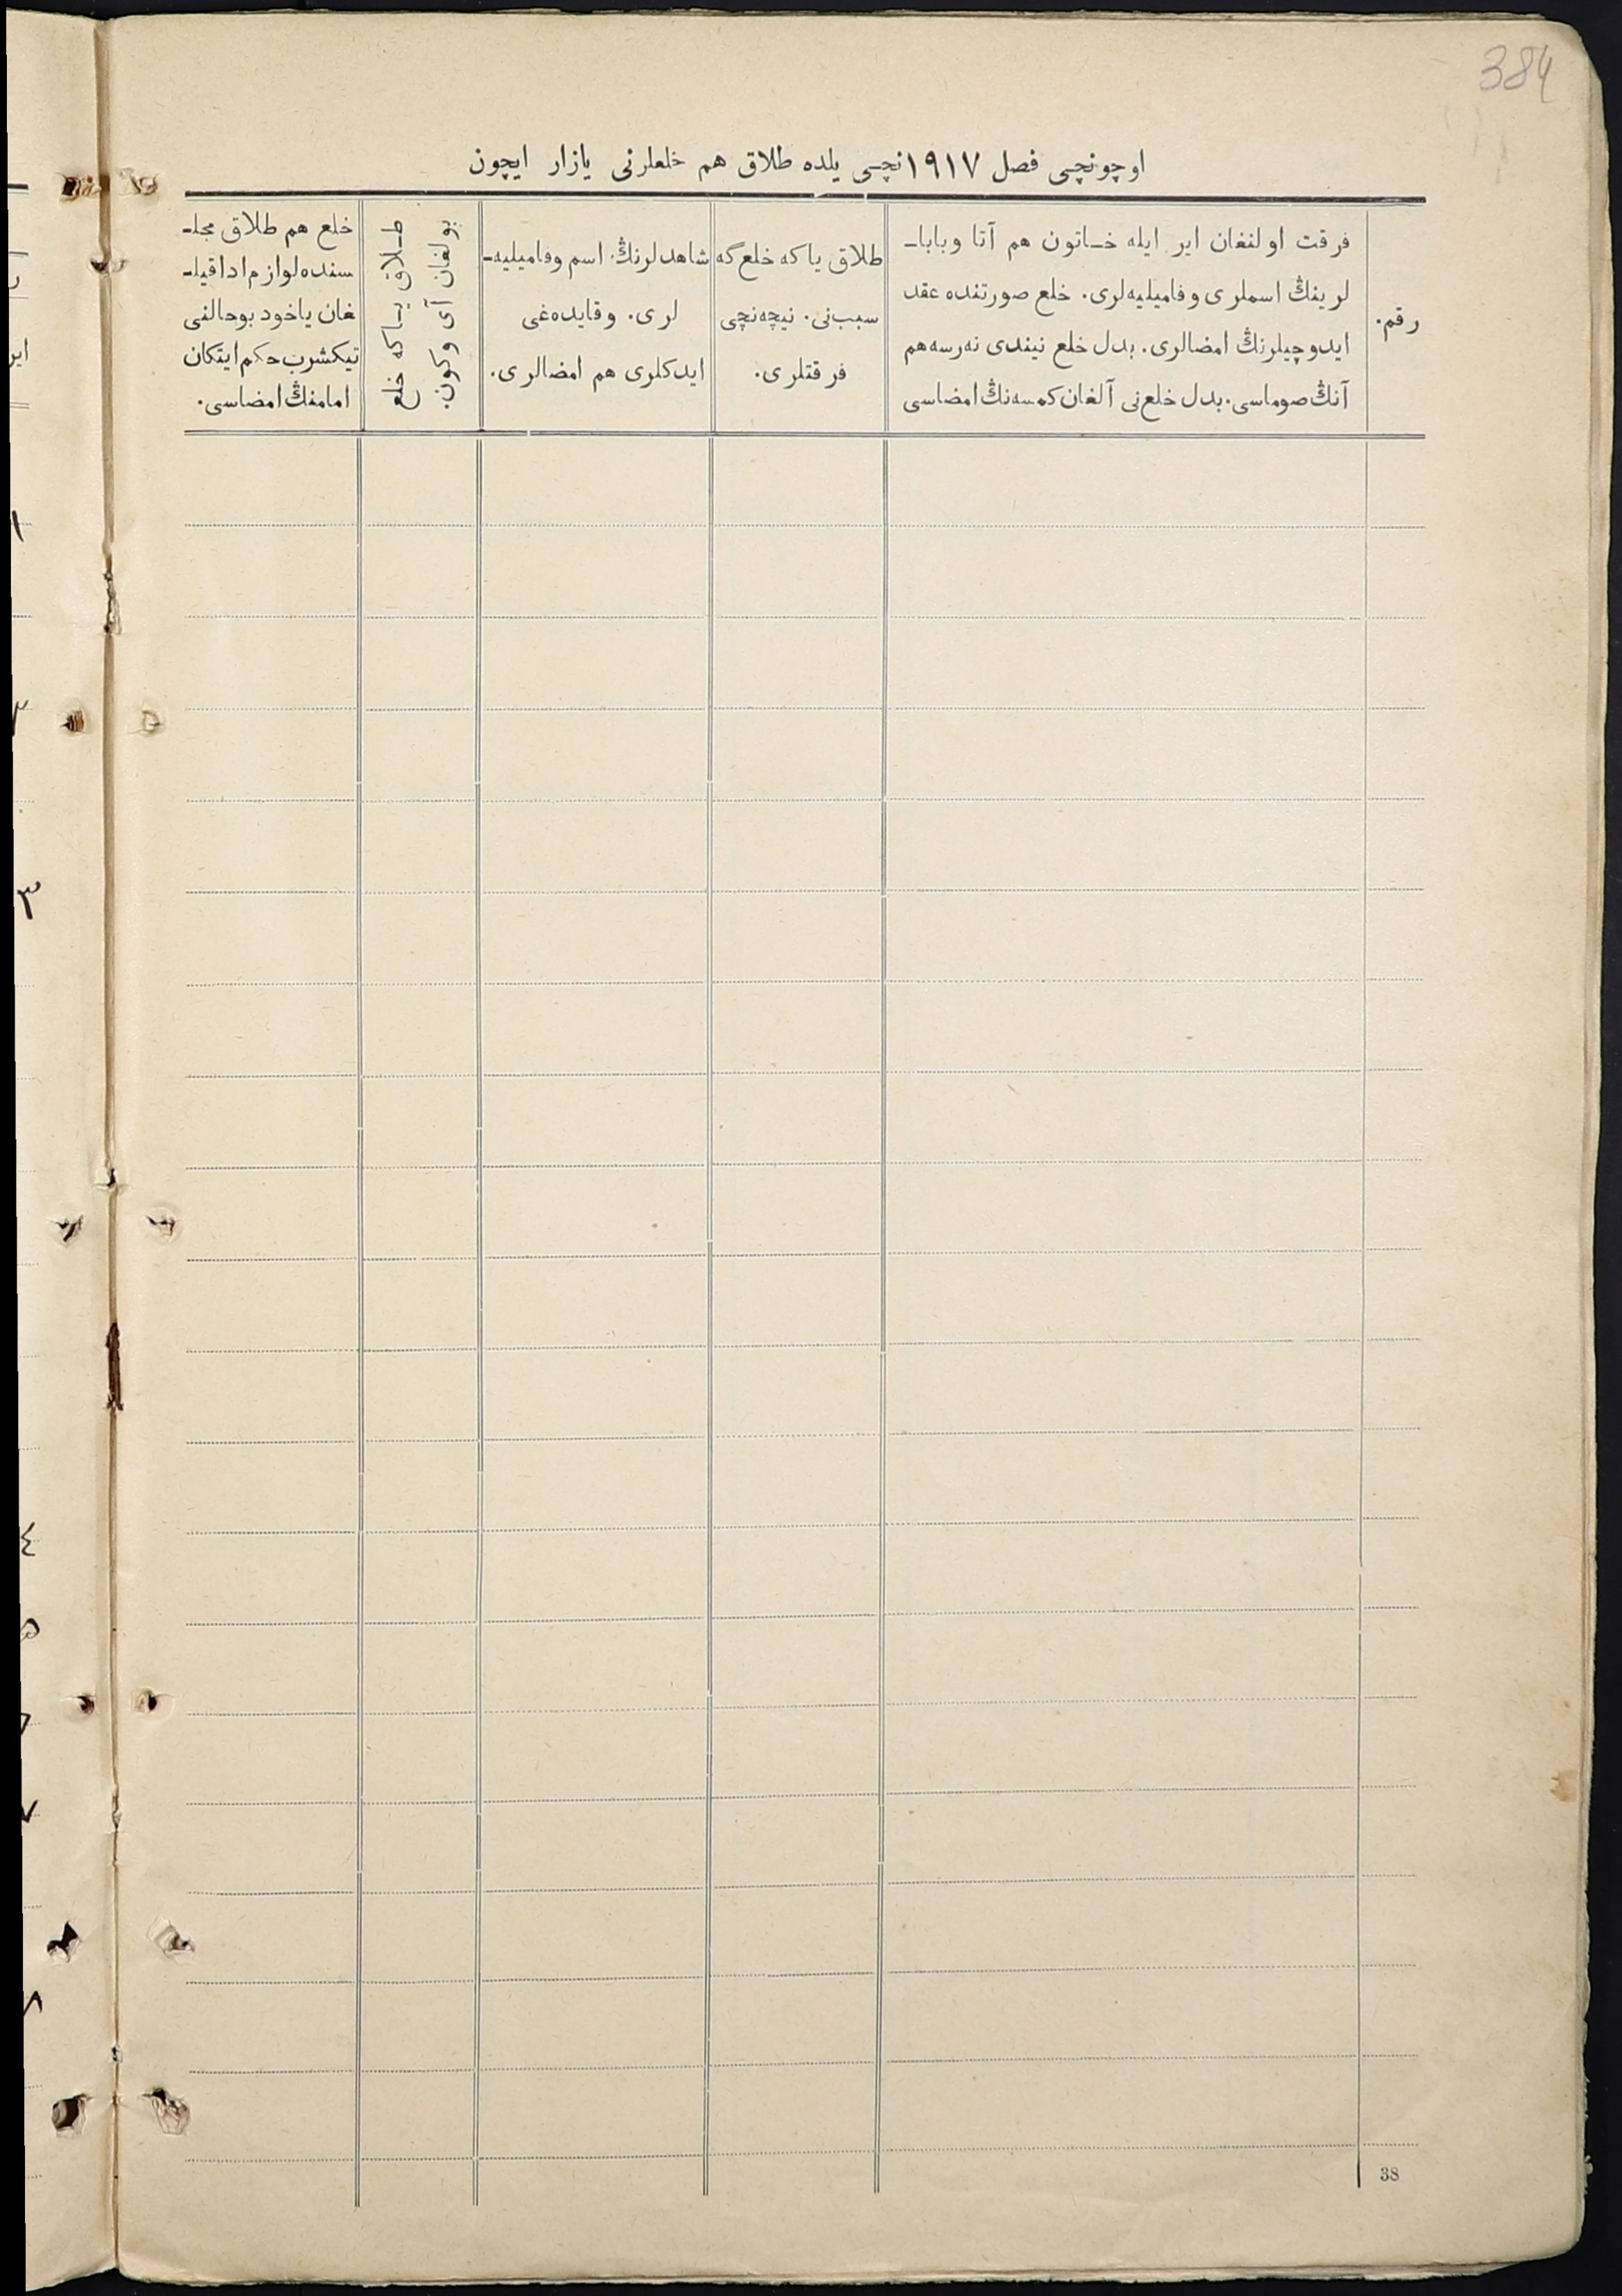 384
اوچونچی فصل ١٩١٧نچی یلده طلاق هم خلعلرنی یازار ایچون
رقم.
فرقت اولنغان ایر ایله خـاتون هم آتا وباباـ
لرینڭ اسملری وفامیلیه‌لری. خلع صورتنده عقد
ایدوچیلرنڭ امضالری. بدل خلع نیندی نەرسه هم
آنڭ صوماسی. بدل خلع‌نی آلغان کمسه‌نڭ امضاسی
طلاق یا که خلع گه
سبب‌نی. نیچه‌نچی
فرقتلری.
شاهدلرنڭ اسم وفامیلیه‌ـ
لری. وقایده‌غی
ایدکلری هم امضالری.
طـلاق یـا که خلع
بولغان آی وکون.
خلع هم طلاق مجلـ
سنده لوازم ادا قیلـ
غان یاخود بوحالنی
تیکشرب حکم ایتکان
امامنڭ امضاسی.
١
٣
٤
٥
٧
٨
38